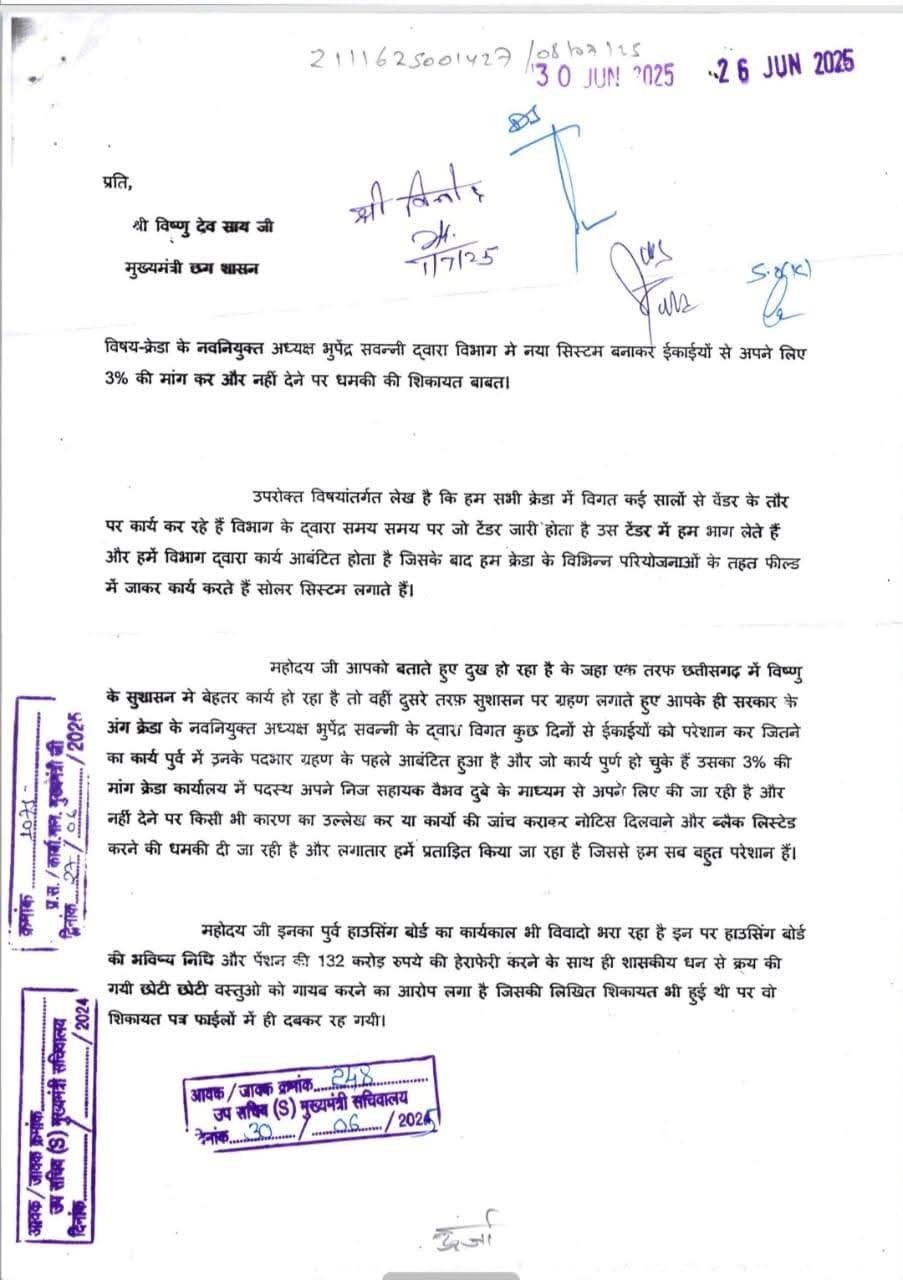 2111625001427/08/07/25
30 JUN 2025
26 JUN 2025
प्रति,
श्री विष्णु देव साय जी
मुख्यमंत्री छग शासन
श्री विनोद
1/7/25
विषय-क्रेडा के नवनियुक्त अध्यक्ष भुपेंद्र सवन्नी द्वारा विभाग मे नया सिस्टम बनाकर ईकाईयों से अपने लिए
3% की मांग कर और नहीं देने पर धमकी की शिकायत बाबत।
उपरोक्त विषयांतर्गत लेख है कि हम सभी क्रेडा में विगत कई सालों से वेंडर के तौर
पर कार्य कर रहे हैं विभाग के द्वारा समय समय पर जो टेंडर जारी होता है उस टेंडर में हम भाग लेते हैं
और हमें विभाग द्वारा कार्य आबंटित होता है जिसके बाद हम क्रेडा के विभिन्न परियोजनाओं के तहत फील्ड
में जाकर कार्य करते हैं सोलर सिस्टम लगाते हैं।
महोदय जी आपको बताते हुए दुख हो रहा है के जहा एक तरफ छतीसगढ़ में विष्णु
के सुशासन मे बेहतर कार्य हो रहा है तो वहीं दुसरे तरफ़ सुशासन पर ग्रहण लगाते हुए आपके ही सरकार के
अंग क्रेडा के नवनियुक्त अध्यक्ष भुपेंद्र सवन्नी के द्वारा विगत कुछ दिनों से ईकाईयों को परेशान कर जितने
का कार्य पुर्व में उनके पदभार ग्रहण के पहले आबंटित हुआ है और जो कार्य पुर्ण हो चुके हैं उसका 3% की
मांग क्रेडा कार्यालय में पदस्थ अपने निज सहायक वैभव दुबे के माध्यम से अपने लिए की जा रही है और
नहीं देने पर किसी भी कारण का उल्लेख कर या कार्यो की जांच कराकर नोटिस दिलवाने और ब्लैक लिस्टेड
करने की धमकी दी जा रही है और लगातार हमें प्रताडित किया जा रहा है जिससे हम सब बहुत परेशान हैं।
महोदय जी इनका पुर्व हाउसिंग बोर्ड का कार्यकाल भी विवादो भरा रहा है इन पर हाउसिंग बोर्ड
की भविष्य निधि और पेंशन की 132 करोड़ रुपये की हेराफेरी करने के साथ ही शासकीय धन से क्रय की
गयी छोटी छोटी वस्तुओ को गायब करने का आरोप लगा है जिसकी लिखित शिकायत भी हुई थी पर वो
शिकायत पत्र फाईलों में ही दबकर रह गयी।
क्रमांक 1075
प्र.स./कार्या.मान. मुख्यमंत्री जी
दिनांक 27/06/2025
आवक/जावक क्रमांक
उप सचिव (S) मुख्यमंत्री सचिवालय
दिनांक / /2024
आवक/जावक क्रमांक 248
उप सचिव (S) मुख्यमंत्री सचिवालय
देनांक 30 / 06 / 2025
ऊर्जा